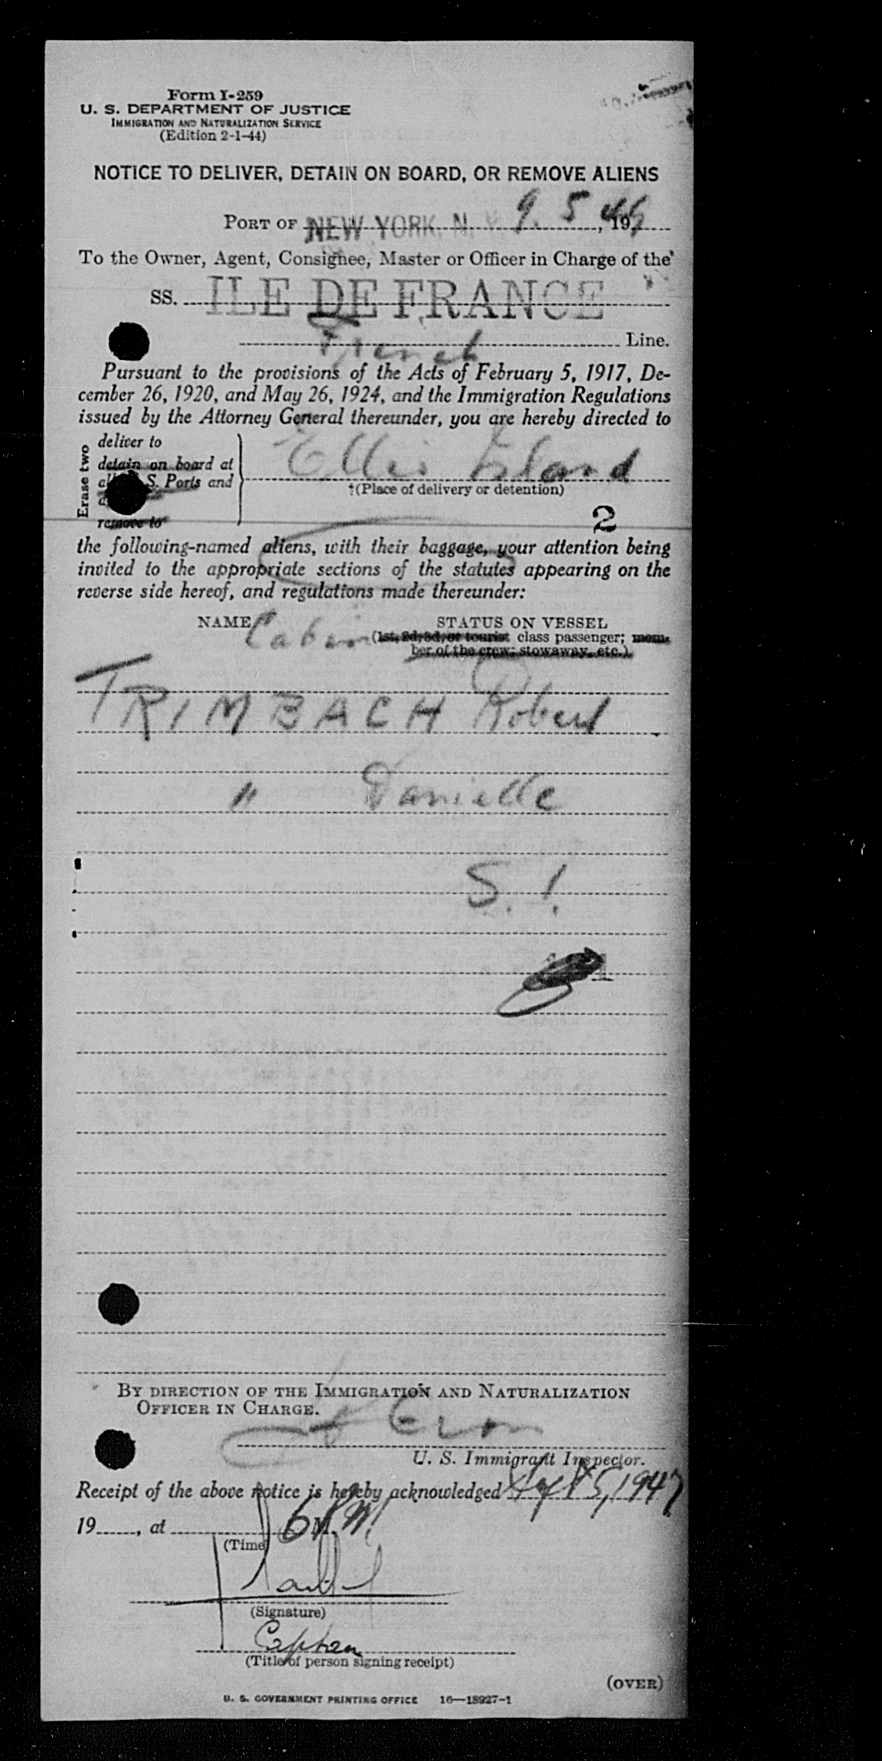 Form I-259
U. S. DEPARTMENT OF JUSTICE
IMMIGRATION AND NATURALIZATION SERVICE
(Edition 2-1-44)
NOTICE TO DELIVER, DETAIN ON BOARD, OR REMOVE ALIENS
PORT OF NEW YORK, N. 9. 5, 19
To the Owner, Agent, Consignee, Master or Officer in Charge of the
SS. ILE DE FRANCE
French Line.
Pursuant to the provisions of the Acts of February 5, 1917, De-
cember 26, 1920, and May 26, 1924, and the Immigration Regulations
issued by the Attorney General thereunder, you are hereby directed to
Erase two
deliver to
detain on board at
S. Ports and
remove to
Ellis Island
(Place of delivery or detention)
2
the following-named aliens, with their baggage, your attention being
invited to the appropriate sections of the statutes appearing on the
reverse side hereof, and regulations made thereunder:
NAME STATUS ON VESSEL
Cabin (1st, 2d, 3d, or tourist class passenger; mem-
ber of the crew; stowaway, etc.)
TRIMBACH Robert
" Danielle
S. I.
BY DIRECTION OF THE IMMIGRATION AND NATURALIZATION
OFFICER IN CHARGE.
U. S. Immigrant Inspector.
Receipt of the above notice is hereby acknowledged Sept 5, 1947
19, at 6 P.M. M.
(Time)
(Signature)
Captain
(Title of person signing receipt)
(OVER)
U. S. GOVERNMENT PRINTING OFFICE 16—18927-1